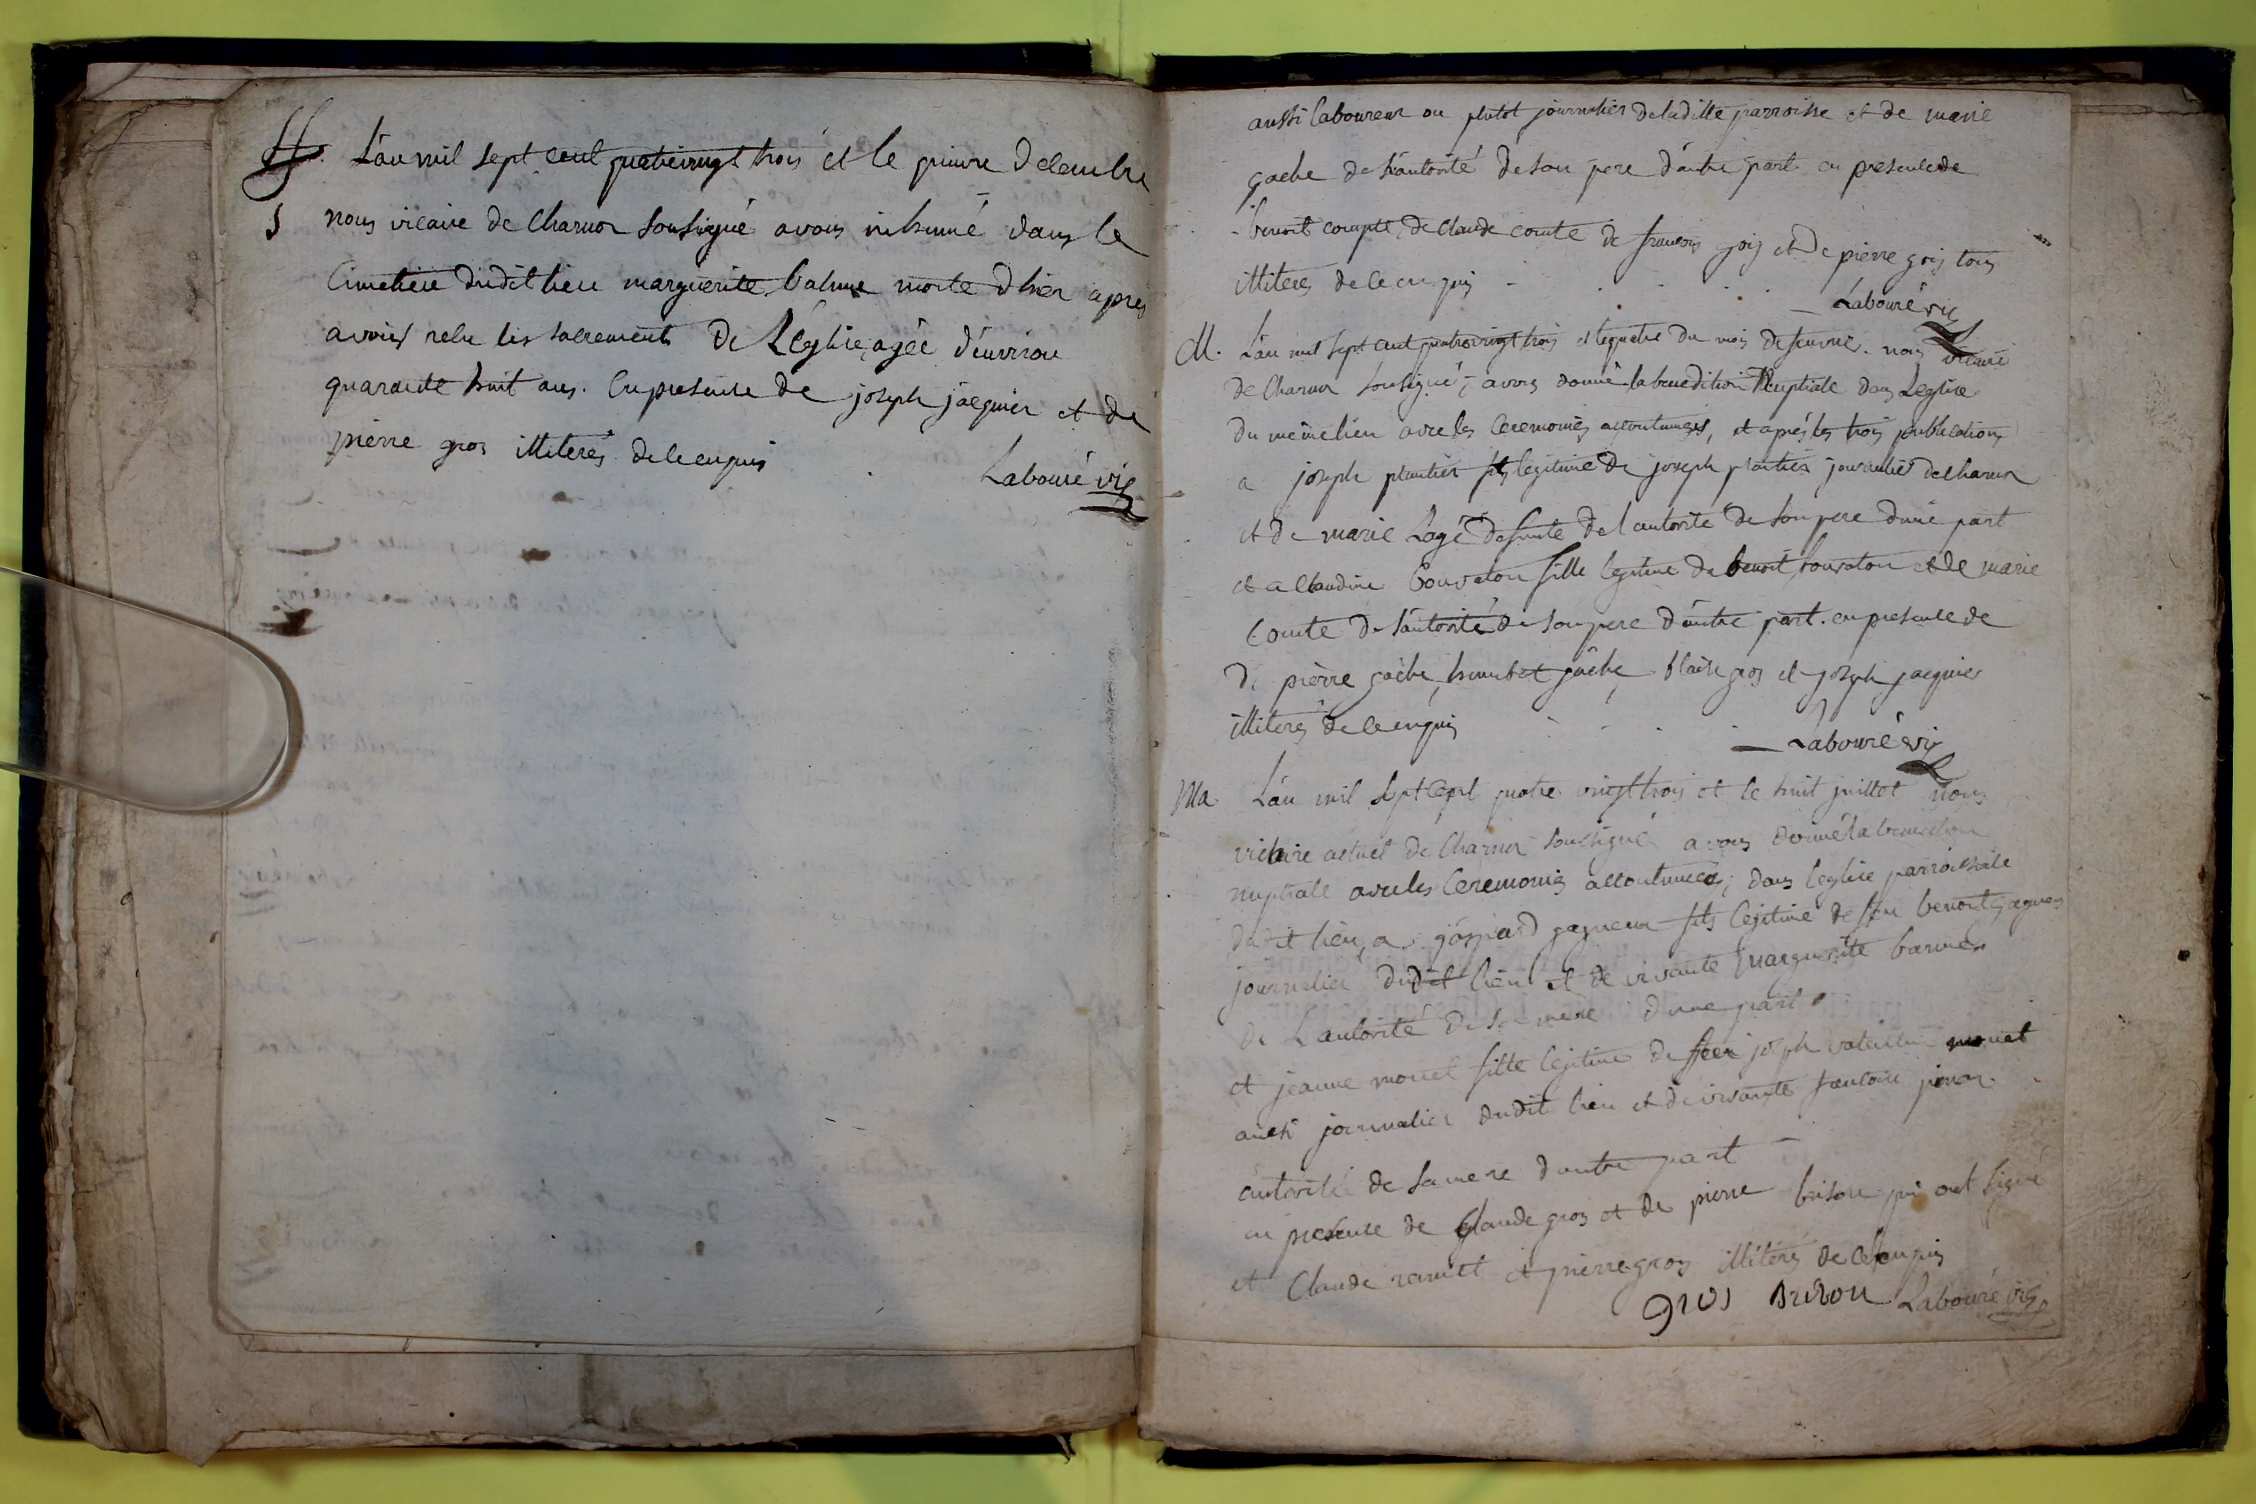 S. L'an mil sept cent quatrevingt trois et le quinze decembre
S nous vicaire de Charnoz soussigné avons inhumé dans le
Cimetiere dudit lieu marguerite balme morte d'hier apres
avoir reçu les sacrements de L'église, agée d'environ
quarante huit ans. En presence de joseph jacquier et de
pierre gros illiterés de ce enquis
Labouré vic
aussi laboureur ou plutot journalier de laditte parroisse et de marie
gache de l'autorité de son pere d'autre part en presence de
benoit compte, de Claude comte de francois goij et de pierre goij tous
illiteres de ce enquis
Labouré vic
M. L'an mil sept cent quatrevingt trois et le quatre du mois de fevrier. nous vicaire
de Charnoz soussigné, avons donné la benediction Nuptiale dans Leglise
du même lieu avec les Ceremonies accoutumées, et aprés les trois publications
a joseph plantier fils legitime de joseph plantier journalier de charnoz
et de marie Lagé defunte de l autorité de son pere d'une part
et a Claudine bouvaton fille legitime de benoit bouvaton et de marie
Comte de l'autorité de son pere d'autre part. en presence de
de pierre gache, humbet gache blaise gros et joseph jacquier
illiterés de ce enquis
Labouré vic
Ma L'an mil sept cent quatre vingt trois et le huit juillet nous
vicaire actuel de Charnoz soussigné avons donné la benediction
nuptiale avec les Ceremonies accoutumées, dans l'eglise parroissiale
dudit lieu, a gaspard gagneux fils legitime de feu benoit gagneux
journalier dudit lieu et de vivante Marguerite
de L'autorité de sa mere d'une part
et jeanne monet fille legitime de feu joseph valentin monet
aussi journalier dudit lieu et de vivante
autorité de sa mere d'autre part
en presence de Claude gros et de pierre brison qui ont signé
et Claude ravuet et pierre gros illitérés de ce enquis
gros brison Labouré vic